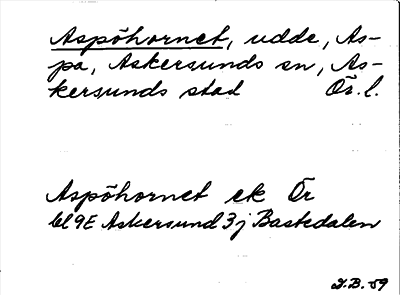 Aspöhornet, udde, As-
pa, Askersunds sn, As-
kersunds stad Ör. l.
Aspöhornet ek Ör
bl 9E Askersund 3 j Bastedalen
I.B. 59